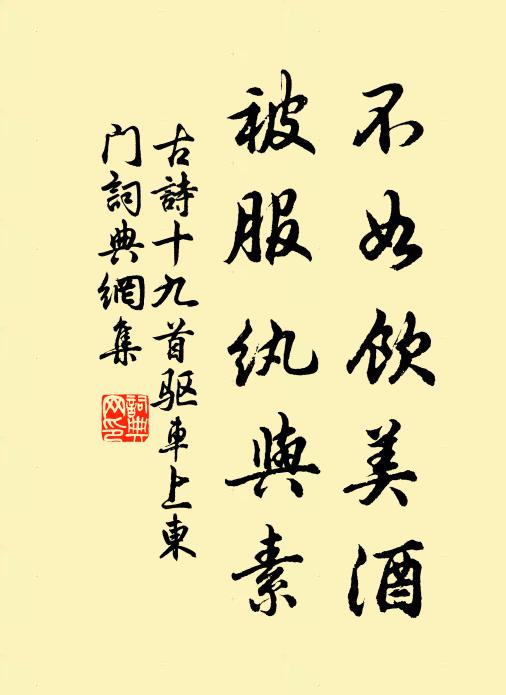 不如飲美酒
被服紈與素
古詩十九首驱車上東
门詞典網集
詞典
网印